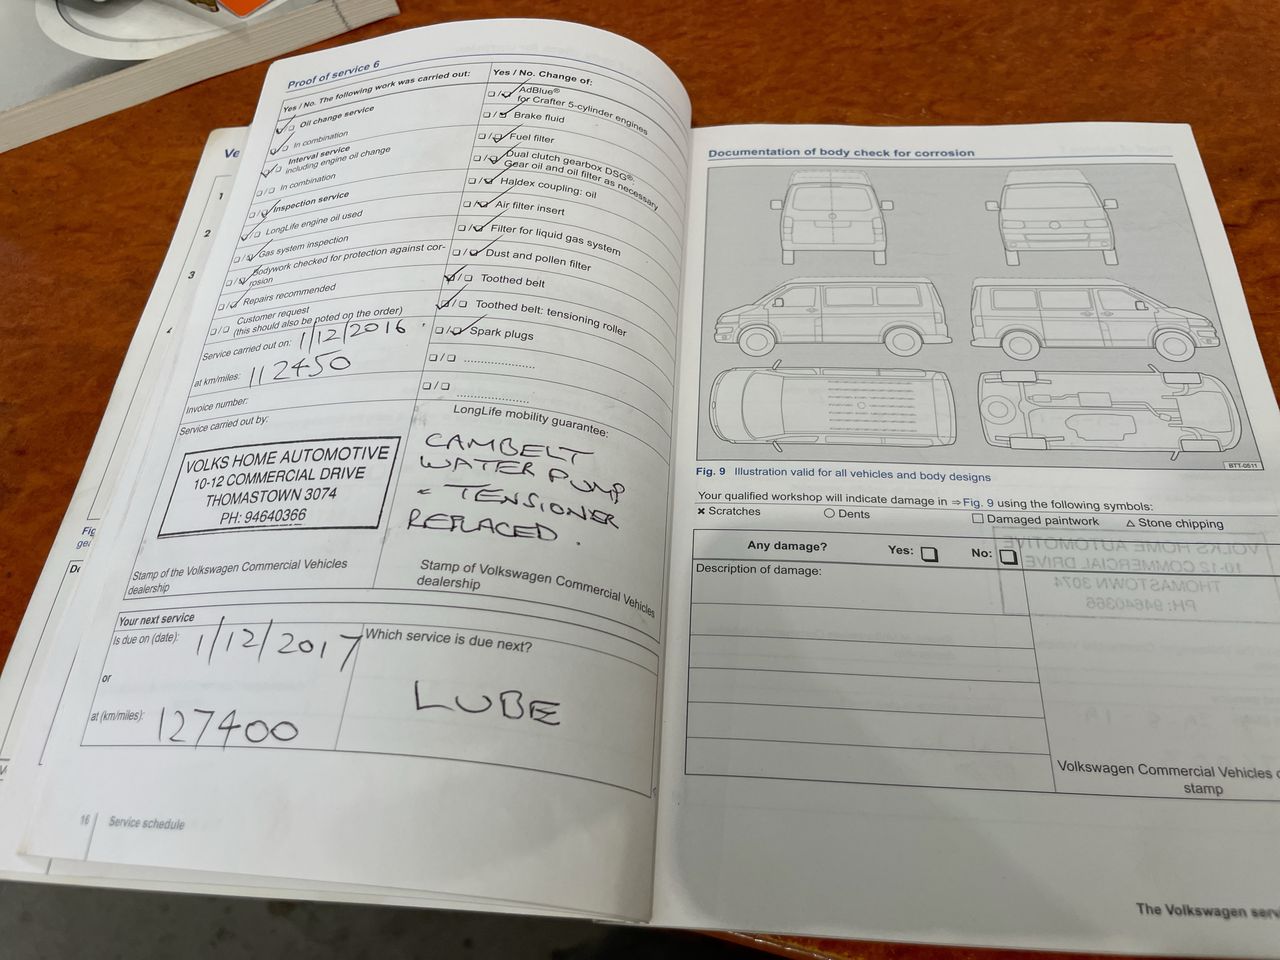 Proof of service 6
Yes / No. The following work was carried out:
Oil change service
In combination
Interval service
including engine oil change
In combination
Inspection service
LongLife engine oil used
Gas system inspection
Bodywork checked for protection against cor-
rosion
Repairs recommended
Customer request
(this should also be noted on the order)
Service carried out on: 1/12/2016
at km/miles: 112450
Invoice number:
Service carried out by:
VOLKS HOME AUTOMOTIVE
10-12 COMMERCIAL DRIVE
THOMASTOWN 3074
PH: 94640366
Stamp of the Volkswagen Commercial Vehicles
dealership
Yes / No. Change of:
AdBlue®
for Crafter 5-cylinder engines
Brake fluid
Fuel filter
Dual clutch gearbox DSG®:
Gear oil and oil filter as necessary
Haldex coupling: oil
Air filter insert
Filter for liquid gas system
Dust and pollen filter
Toothed belt
Toothed belt: tensioning roller
Spark plugs
LongLife mobility guarantee:
CAMBELT
WATER PUMP
+ TENSIONER
REPLACED.
Stamp of Volkswagen Commercial Vehicles
dealership
Your next service
Is due on (date): 1/12/2017
or
at (km/miles): 127400
Which service is due next?
LUBE
16 Service schedule
Ve
1
2
3
Documentation of body check for corrosion
BTT-0511
Fig. 9 Illustration valid for all vehicles and body designs
Your qualified workshop will indicate damage in ⇒ Fig. 9 using the following symbols:
× Scratches ○ Dents □ Damaged paintwork △ Stone chipping
Any damage? Yes: No:
Description of damage:
Volkswagen Commercial Vehicles
stamp
The Volkswagen serv